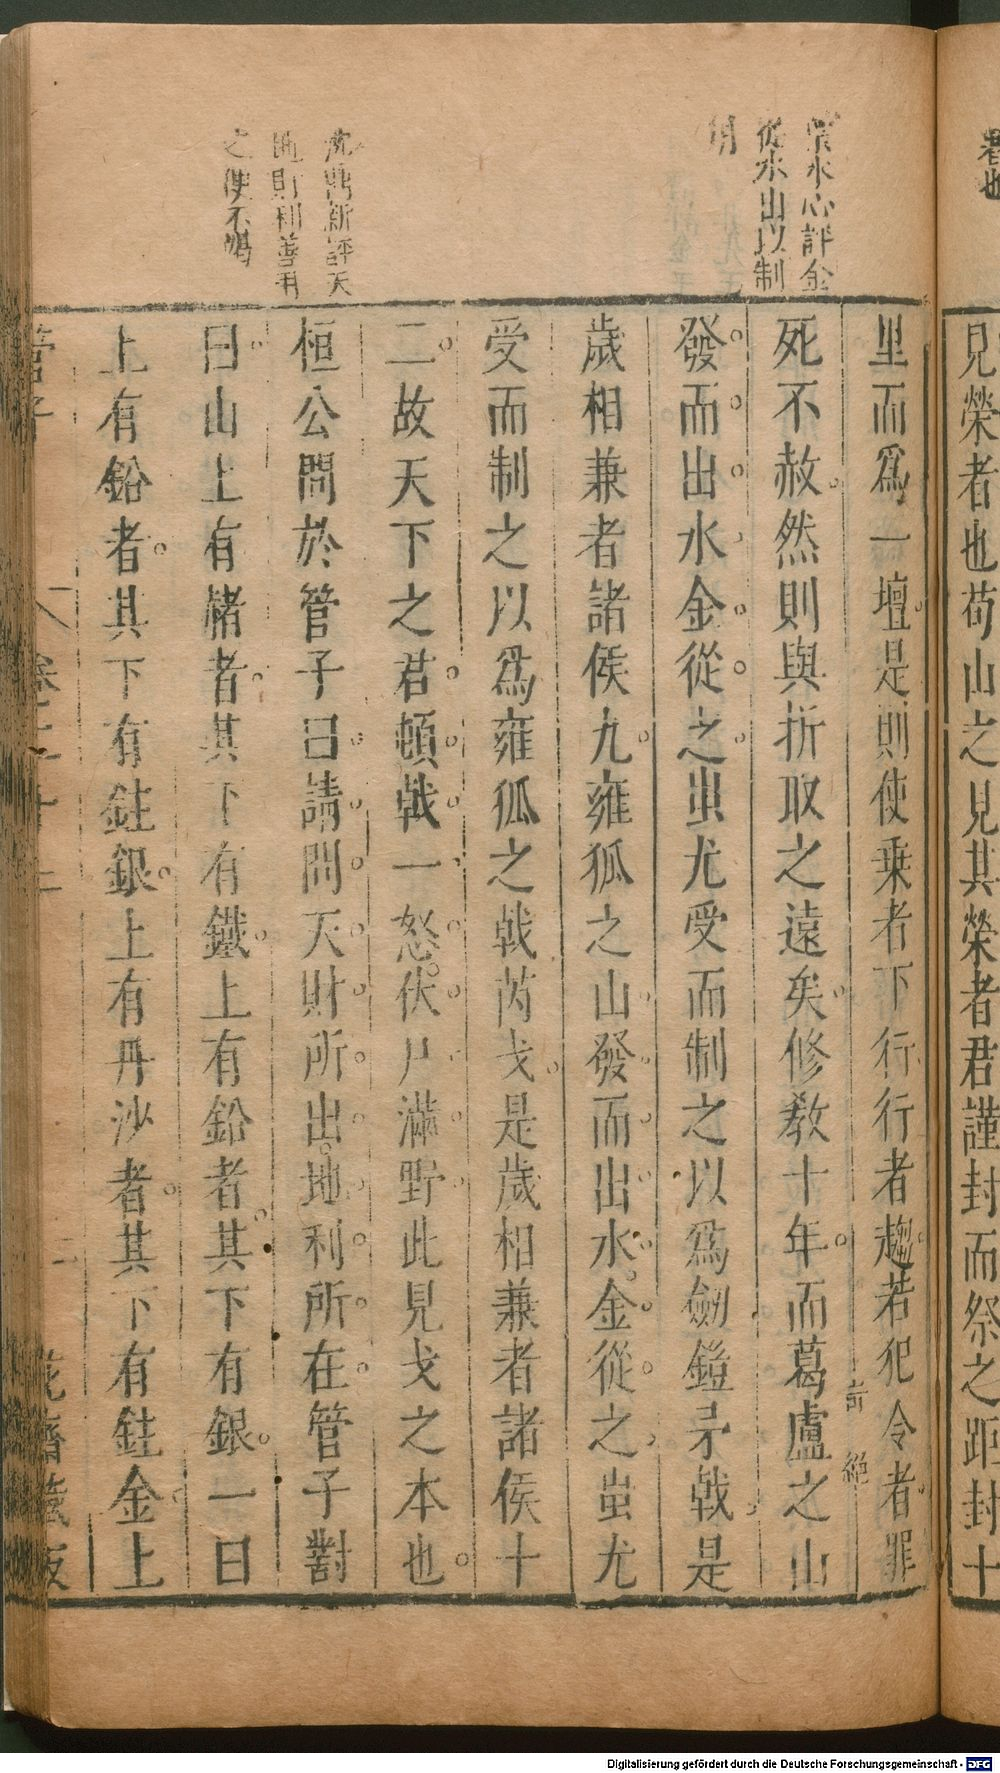 者也
見榮者也苟山之見其榮者君謹封而祭之距封十
葉水心評金
從水出以制
明
里而爲一壇是則使乗者下行行者趨若犯令者罪
死不赦然則與折取之遠矣修教十年而葛盧之山
發而出水金從之蚩尤受而制之以爲劒鎧矛戟是
歲相兼者諸侯九雍狐之山發而出水金從之蚩尤
受而制之以爲雍狐之戟芮戈是歲相兼者諸侯十
二故天下之君頓戟一怒伏尸滿野此見戈之本也
沈鼎新評天
地財利善用
之便不竭
桓公問於管子曰請問天財所出地利所在管子對
曰山上有赭者其下有鐵上有鉛者其下有銀一曰
上有鉛者其下有鉒銀上有丹沙者其下有鉒金上
管子 卷二十三 花齋藏板
Digitalisierung gefördert durch die Deutsche Forschungsgemeinschaft - DFG